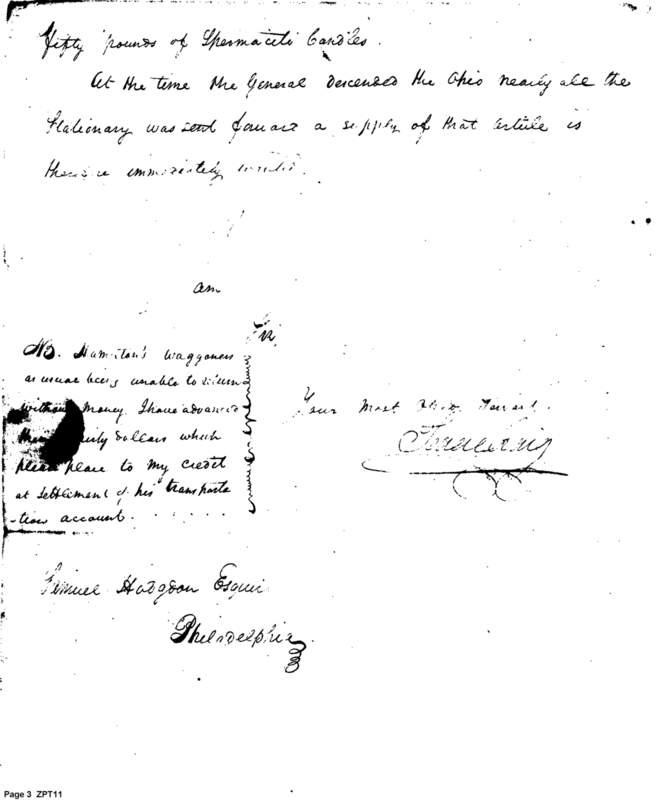 fifty pounds of Spermaciti Candles.
At the time the General descended the Ohio nearly all the
Stationary was sent forward a supply of that article is
therefore immediately
am
Sir,
NB. Hamilton's waggoners
as usual being unable to return
without money. I have advanced
them dollars which
please place to my credit
at settlement of his transporta
-tion account.
Your Most Obed. Servant.
Isaac Craig
Samuel Hodgdon Esqui
Philadelphia.
Page 3 ZPT11